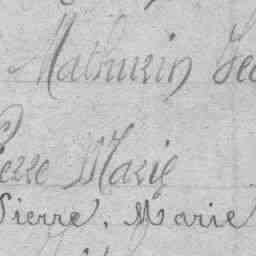 Mathurin
Pierre Marie
Pierre, Marie